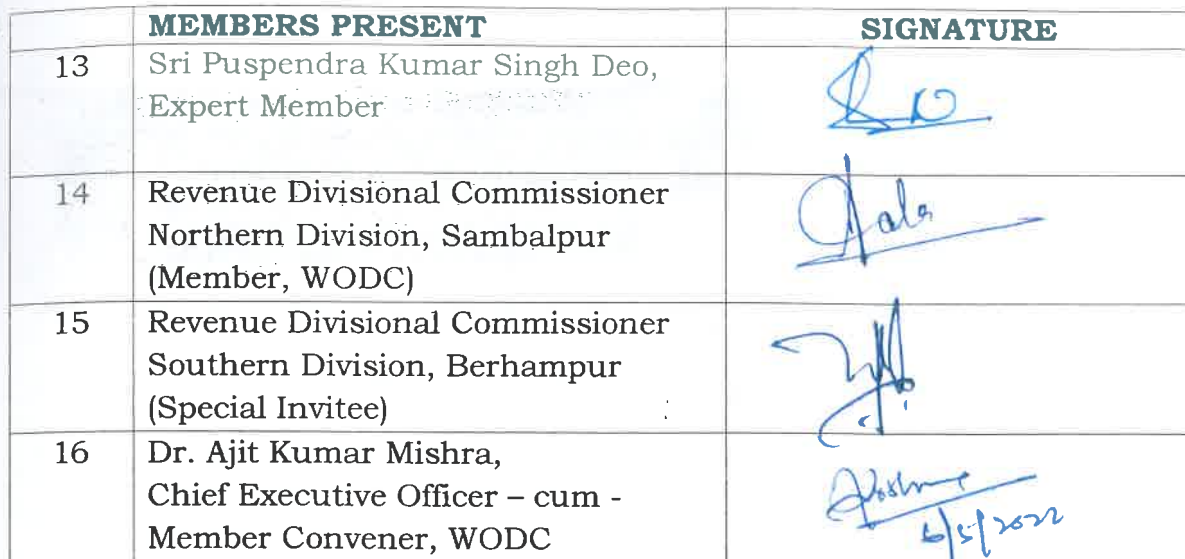 MEMBERS PRESENT SIGNATURE
13 Sri Puspendra Kumar Singh Deo,
Expert Member
14 Revenue Divisional Commissioner
Northern Division, Sambalpur
(Member, WODC)
15 Revenue Divisional Commissioner
Southern Division, Berhampur
(Special Invitee)
16 Dr. Ajit Kumar Mishra,
Chief Executive Officer – cum -
Member Convener, WODC
6/5/2022